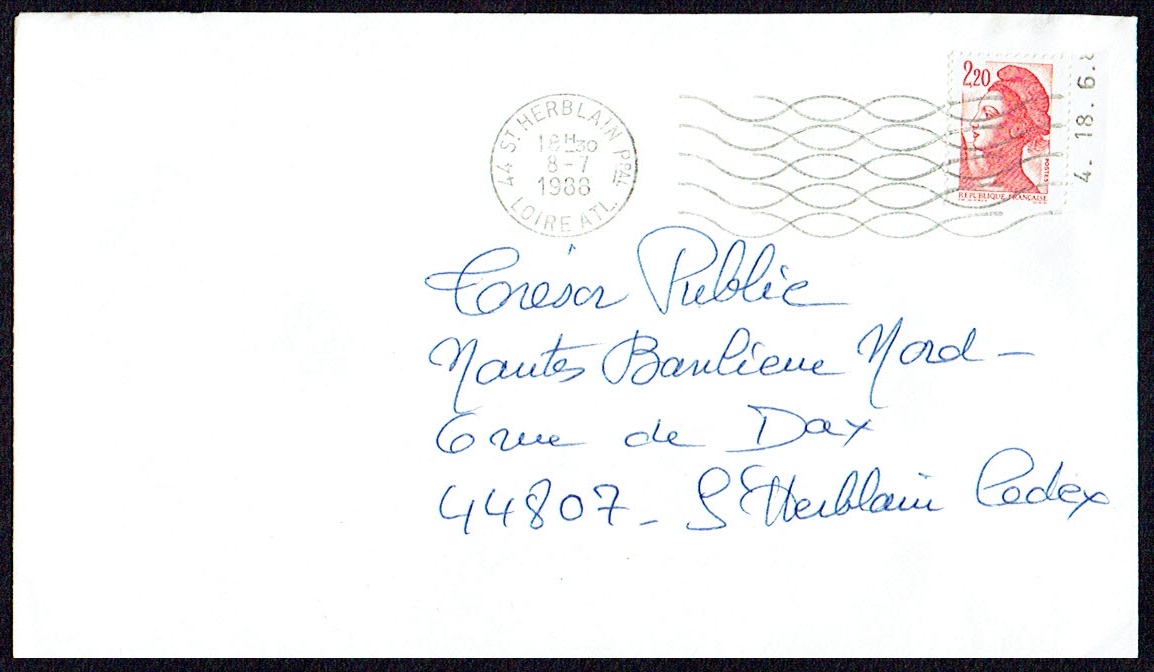 44 ST HERBLAIN PPAL
18H30
8-7
1988
LOIRE ATL.
2,20
POSTES
REPUBLIQUE FRANÇAISE
4. 18.6.8
Trésor Public
Nantes Banlieue Nord -
6 rue de Dax
44807 - St Herblain Cedex